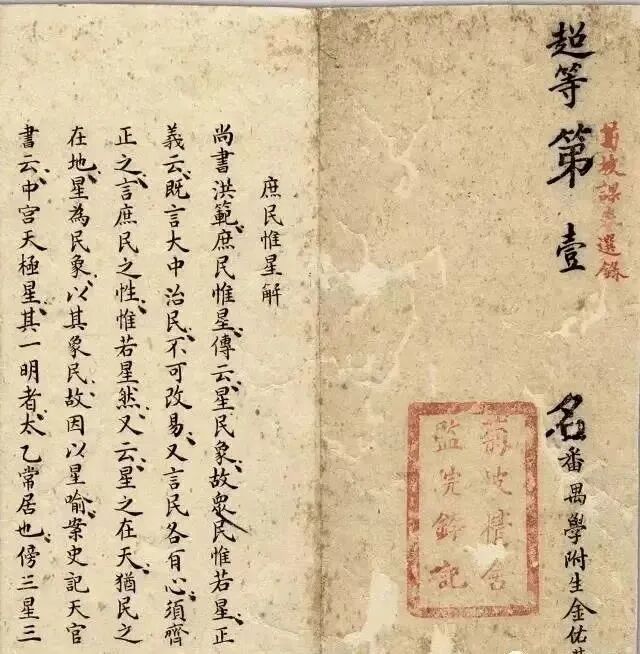 菊坡課卷選錄
超等第壹名
番禺學附生金佑
菊坡精舍
監院鈐記
庶民惟星解
尚書洪範庶民惟星傳云星民象故衆民惟若星正
義云既言大中治民不可改易又言民各有心須齊
正之言庶民之性惟若星然又云星之在天猶民之
在地星為民象以其象民故因以星喻案史記天官
書云中宮天極星其一明者太乙常居也傍三星三